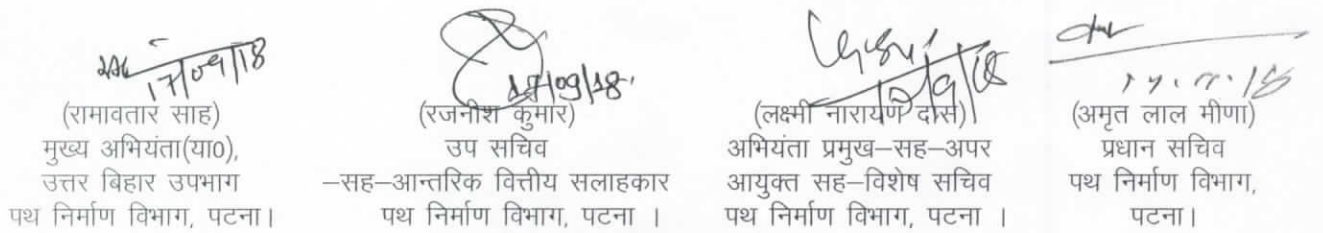 17/09/18
17/09/18.
(रामावतार साह)
मुख्य अभियंता(या0),
उत्तर बिहार उपभाग
पथ निर्माण विभाग, पटना।
(रजनीश कुमार)
उप सचिव
–सह–आन्तरिक वित्तीय सलाहकार
पथ निर्माण विभाग, पटना ।
(लक्ष्मी नारायण दास)
अभियंता प्रमुख–सह–अपर
आयुक्त सह–विशेष सचिव
पथ निर्माण विभाग, पटना ।
(अमृत लाल मीणा)
प्रधान सचिव
पथ निर्माण विभाग,
पटना।